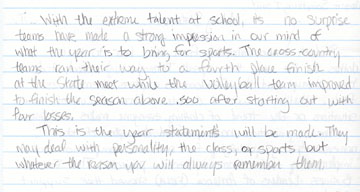 With the extreme talent at school, its no surprise
teams have made a strong impression in our mind of
what the year is to bring for sports. The cross-country
teams ran their way to a fourth place finish
at the State meet while the volleyball team improved
to finish the season above .500 after starting out with
four losses.
This is the year statements will be made. They
may deal with personality, the class, or sports, but
whatever the reason you will always remember them.